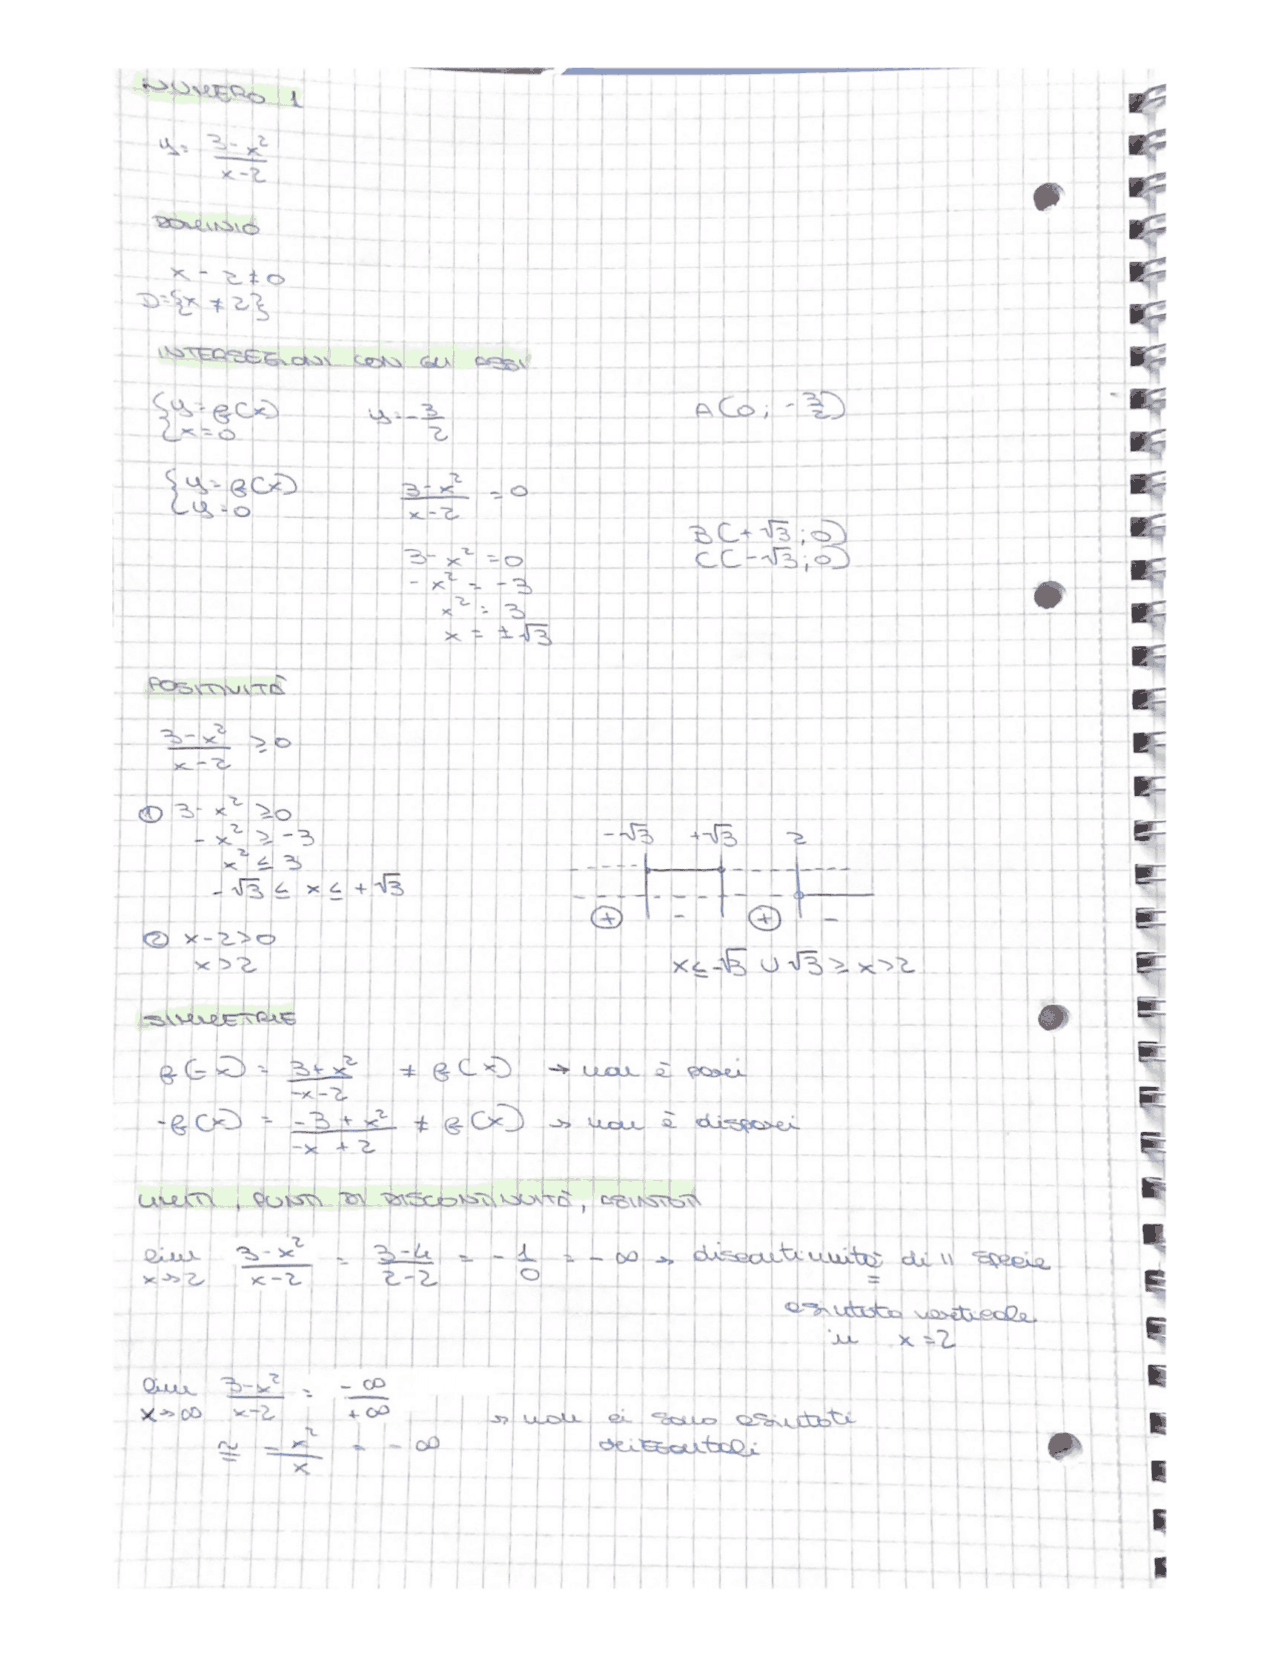 NUMERO 1
y = (3-x²)/(x-2)
DOMINIO
x - 2 ≠ 0
D = {x ≠ 2}
INTERSEZIONI CON GLI ASSI
{y = f(x) {x = 0 y = -3/2 A(0; -3/2)
{y = f(x) {y = 0 (3-x²)/(x-2) = 0
B(+√3; 0)
3 - x² = 0 C(-√3; 0)
-x² = -3
x² = 3
x = ±√3
POSITIVITÀ
(3-x²)/(x-2) ≥ 0
① 3 - x² ≥ 0
-x² ≥ -3
x² ≤ 3
-√3 ≤ x ≤ +√3
② x - 2 > 0
x > 2
-√3 +√3 2
+ - + -
x ≤ -√3 ∪ √3 ≥ x > 2
SIMMETRIE
f(-x) = (3+x²)/(-x-2) ≠ f(x) → non è pari
-f(x) = (-3+x²)/(-x+2) ≠ f(x) → non è dispari
LIMITI, PUNTI DI DISCONTINUITÀ, ASINTOTI
lim x→2 (3-x²)/(x-2) = (3-4)/(2-2) = -1/0 = -∞ → discontinuità di II specie
=
asintoto verticale
in x = 2
lim x→∞ (3-x²)/(x-2) = -∞/+∞
→ non ci sono asintoti
≅ -x²/x = -∞ orizzontali